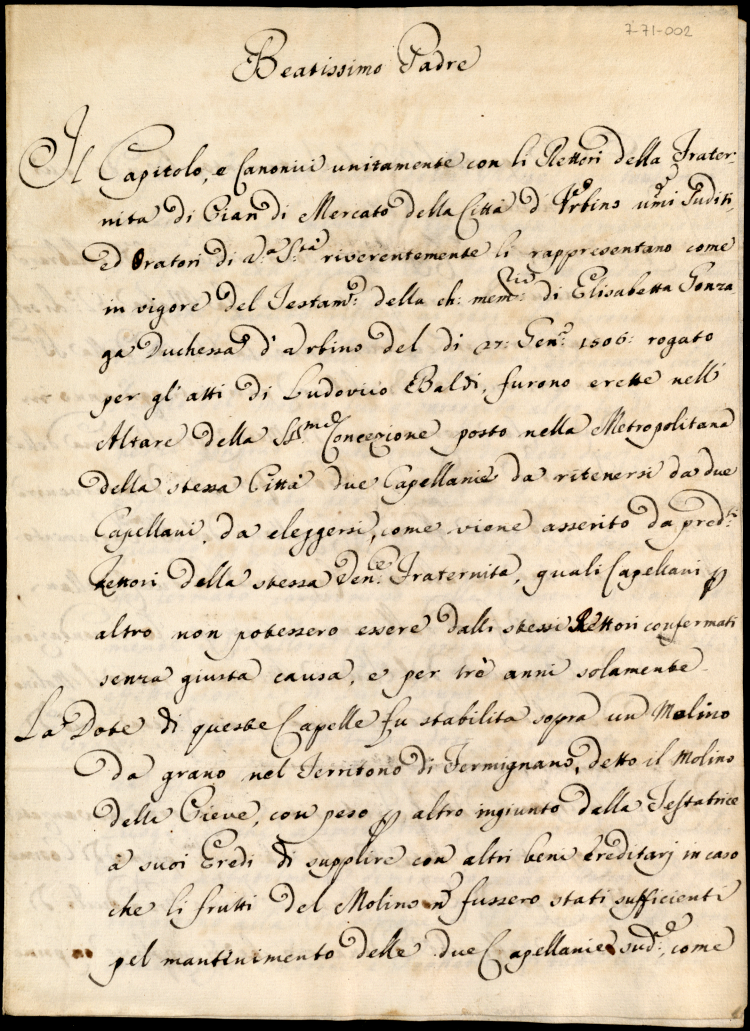 7-71-002
Beatissimo Padre
Il Capitolo, e Canonici unitamente con li Rettori della Frater-
nita di Pian di Mercato della Città d'Urbino umi Suditi
ed Oratori di V.a S.tà riverentemente li rappresentano come
in vigore del Testam.o della ch: mem: di Elisabetta Gonza
ga Duchessa d'Urbino del di 27: Gen.o 1506: rogato
per gl'atti di Ludovico Baldi, furono erette nell'
Altare della SSma Concezione posto nella Metropolitana
della stessa Città due Capellanie da ritenersi da due
Capellani, da eleggersi, come viene asserito da pred.ti
Rettori della stessa Ven.e Fraternita, quali Capellani p
altro non potessero essere dalli stessi Rettori confermati
senza giusta causa, e per trè anni solamente
La Dote di queste Capelle fu stabilita sopra un Molino
da grano nel Territorio di Fermignano, detto il Molino
della Pieve, con peso p altro ingiunto dalla Testatrice
a suoi Eredi di supplire con altri beni Ereditarj in caso
che li frutti del Molino nō fussero stati sufficienti
pel mantinimento delle due Capellanie sud.e, come